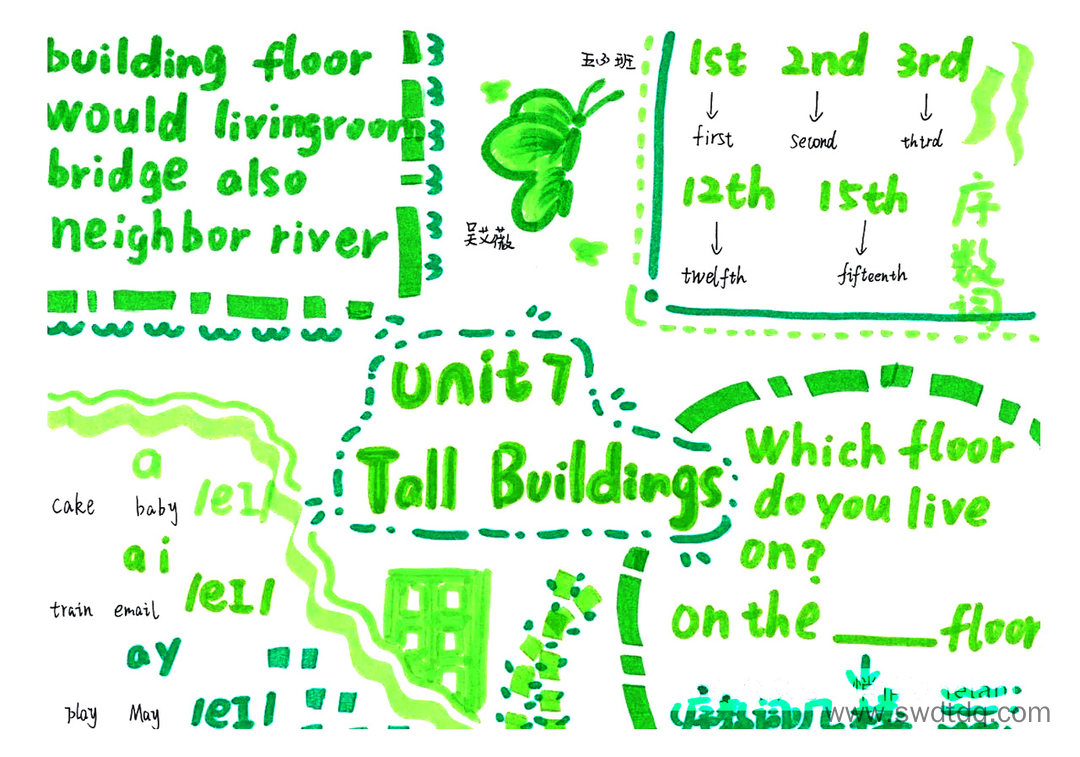 building floor
would livingroom
bridge also
neighbor river
五(3)班
吴艾薇
1st 2nd 3rd
first second third
12th 15th
twelfth fifteenth
序
数
词
unit 7
Tall Buildings
a
/eI/
cake baby
ai
/eI/
train email
ay
/eI/
play May
Which floor
do you live
on?
on the ____ floor
www.swdtdq.com